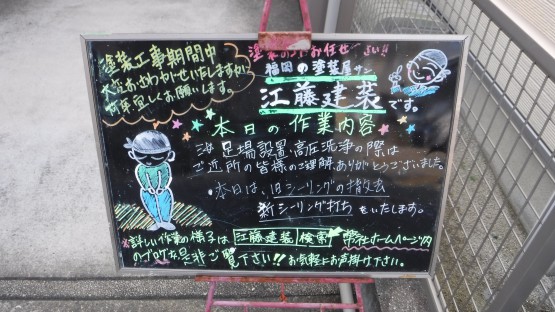 塗装工事期間中
大変おさわがせいたしますが
何卒宜しくお願いします。
塗装のことお任せ下さい!!
福岡の塗装屋サン
江藤建装です。
本日の作業内容
足場設置、高圧洗浄の際は
ご近所の皆様のご理解、ありがとうございました。
・本日は、旧シーリングの撤去
新シーリング打ちをいたします。
※詳しい作業の様子は 江藤建装 検索 弊社ホームページ内
のブログを是非ご覧下さい!! お気軽にお声掛け下さい。